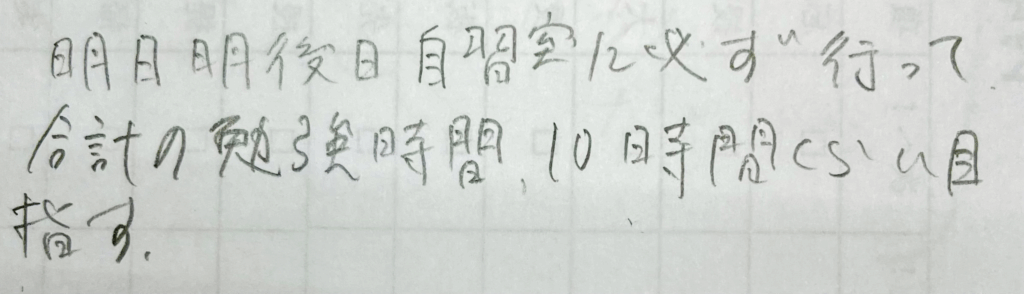 明日明後日自習室に必ず行って
合計の勉強時間、10時間くらい目
指す.